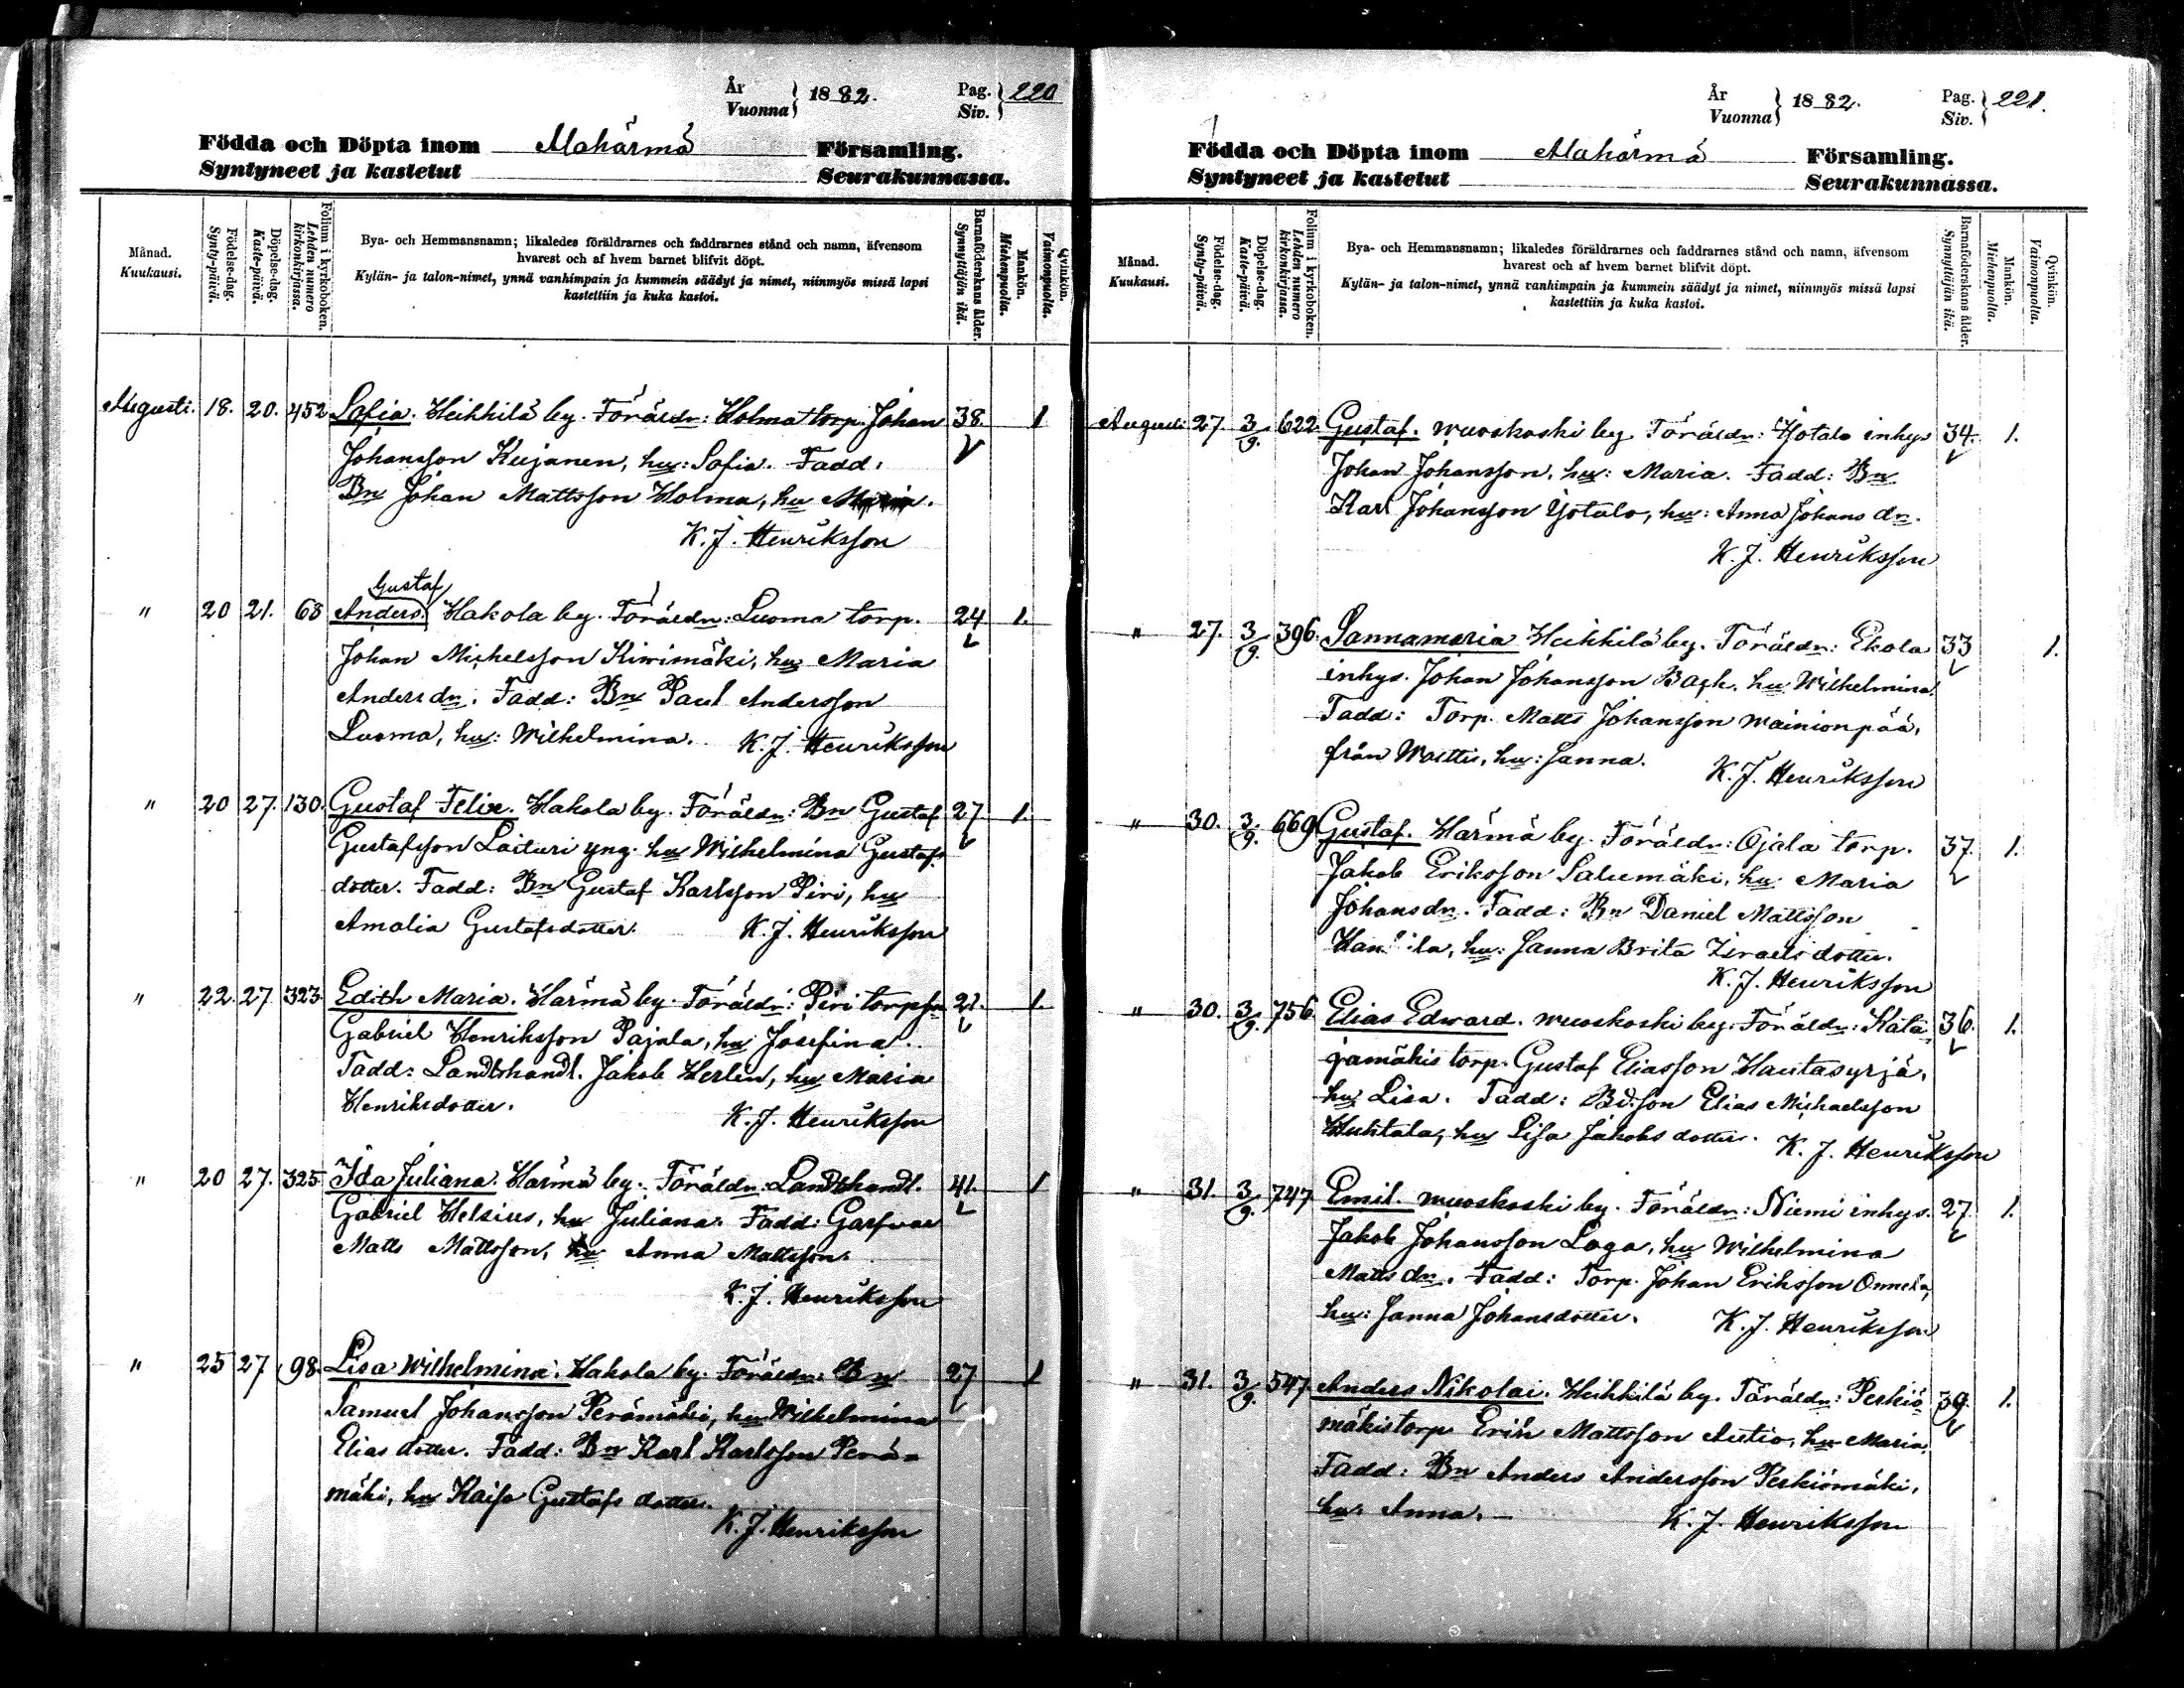 År
Vuonna } 1882.
Pag.
Siv. } 220
Födda och Döpta inom Alahärmä Församling.
Syntyneet ja kastetut Seurakunnassa.
Månad.
Kuukausi.
Födelse-dag.
Synty-päivä.
Döpelse-dag.
Kaste-päivä.
Folium i kyrkoboken.
Lehden numero
kirkonkirjassa.
Bya- och Hemmansnamn; likaledes föräldrarnes och faddrarnes stånd och namn, äfvensom
hvarest och af hvem barnet blifvit döpt.
Kylän- ja talon-nimet, ynnä vanhimpain ja kummein säädyt ja nimet, niinmyös missä lapsi
kastettiin ja kuka kastoi.
Barnaföderskans ålder.
Synnyttäjän ikä.
Mankön.
Miehenpuolta.
Qvinkön.
Vaimonpuolta.
Augusti. 18. 20. 452 Sofia. Heikkilä by. Föräldr: Holma torp. Johan 38. 1
Johansson Keijanen, hu: Sofia. Fadd:
Bn Johan Mattsson Holma, hu Maria.
K. J. Henriksson
Gustaf
" 20 21. 68 Anders. Hakola by. Föräldr: Luoma torp. 24 1.
Johan Michelsson Kiwimäki, hu Maria
Andersdn. Fadd: Bn Paul Andersson
Luoma, hu: Wilhelmina. K. J. Henriksson
" 20 27. 130. Gustaf Felix. Hakola by. Föräldr: Bn Gustaf 27. 1.
Gustafsson Laituri yng. hu Wilhelmina Gustafs
dotter. Fadd: Bn Gustaf Karlsson Piri, hu
Amalia Gustafsdotter. K. J. Henriksson
" 22. 27. 323. Edith Maria. Härmä by. Föräldr: Piri torpson 21. 1.
Gabriel Henriksson Pajala, hu Josefina.
Fadd: Landthandl. Jakob Herlin, hu Maria
Henriksdotter.
K. J. Henriksson
" 20 27. 325 Ida Juliana. Härmä by. Föräldr: Landthandl. 41. 1
Gabriel Helsius, hu Juliana. Fadd: Garfvar
Matts Mattsson, hu Anna Mattsson.
K. J. Henriksson
" 25 27. 98. Lisa Wilhelmina. Hakola by. Föräldr: Bn 27 1
Samuel Johansson Perämäki, hu Wilhelmina
Elias dotter. Fadd: Bn Karl Karlsson Perä-
mäki, hu Kaisa Gustafs dotter.
K. J. Henriksson
År
Vuonna } 1882.
Pag.
Siv. } 221.
Födda och Döpta inom Alahärmä Församling.
Syntyneet ja kastetut Seurakunnassa.
Månad.
Kuukausi.
Födelse-dag.
Synty-päivä.
Döpelse-dag.
Kaste-päivä.
Folium i kyrkoboken.
Lehden numero
kirkonkirjassa.
Bya- och Hemmansnamn; likaledes föräldrarnes och faddrarnes stånd och namn, äfvensom
hvarest och af hvem barnet blifvit döpt.
Kylän- ja talon-nimet, ynnä vanhimpain ja kummein säädyt ja nimet, niinmyös missä lapsi
kastettiin ja kuka kastoi.
Barnaföderskans ålder.
Synnyttäjän ikä.
Mankön.
Miehenpuolta.
Qvinkön.
Vaimonpuolta.
Augusti 27 3/9. 622. Gustaf. Wuoskoski by. Föräldr: Yötalo inhys 34. 1.
Johan Johansson, hu: Maria. Fadd: Bn
Karl Johansson Yötalo, hu: Anna Johans dn.
K. J. Henriksson
" 27. 3/9. 396. Sannamaria Heikkilä by. Föräldr: Ekola 33 1.
inhys. Johan Johansson Back, hu Wilhelmina.
Fadd: Torp. Matts Johansson Wainionpää,
från Woltti, hu: Sanna.
K. J. Henriksson
" 30. 3/9. 669 Gustaf. Härmä by. Föräldr: Ojala torp. 37. 1.
Jakob Eriksson Salumäki, hu Maria
Johansdn. Fadd: Bn Daniel Mattsson
hu: Sanna Brita Israelsdotter.
K. J. Henriksson
" 30. 3/9. 756 Elias Edward. Wuoskoski by. Föräldr: Kata 36. 1.
jamäkis torp. Gustaf Eliasson Hautasyrjä,
hu Lisa. Fadd: Bdson Elias Michaelsson
Huhtala, hu Lisa Jakobs dotter. K. J. Henriksson
" 31. 3/9. 747 Emil. Wuoskoski by. Föräldr: Niemi inhys. 27. 1.
Jakob Johansson Laga, hu Wilhelmina
Mattsdn. Fadd: Torp. Johan Eriksson Onnela,
hu: Sanna Johansdotter. K. J. Henriksson
" 31. 3/9. 547. Anders Nikolai. Heikkilä by. Föräldr: Perkiö- 39. 1.
mäkis torp Erik Mattsson Autio, hu Maria.
Fadd: Bn Anders Andersson Perkiömäki,
hu: Anna.
K. J. Henriksson